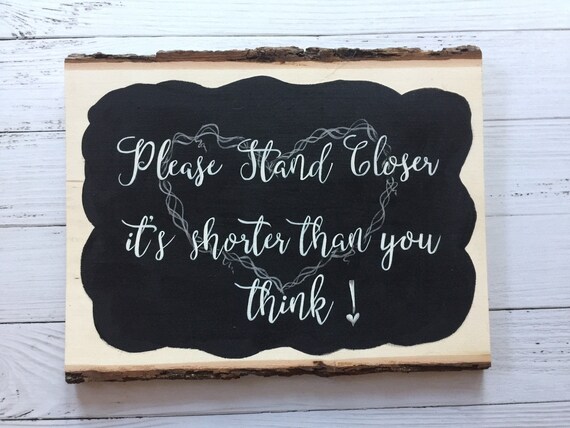 Please Stand Closer
it's shorter than you
think!